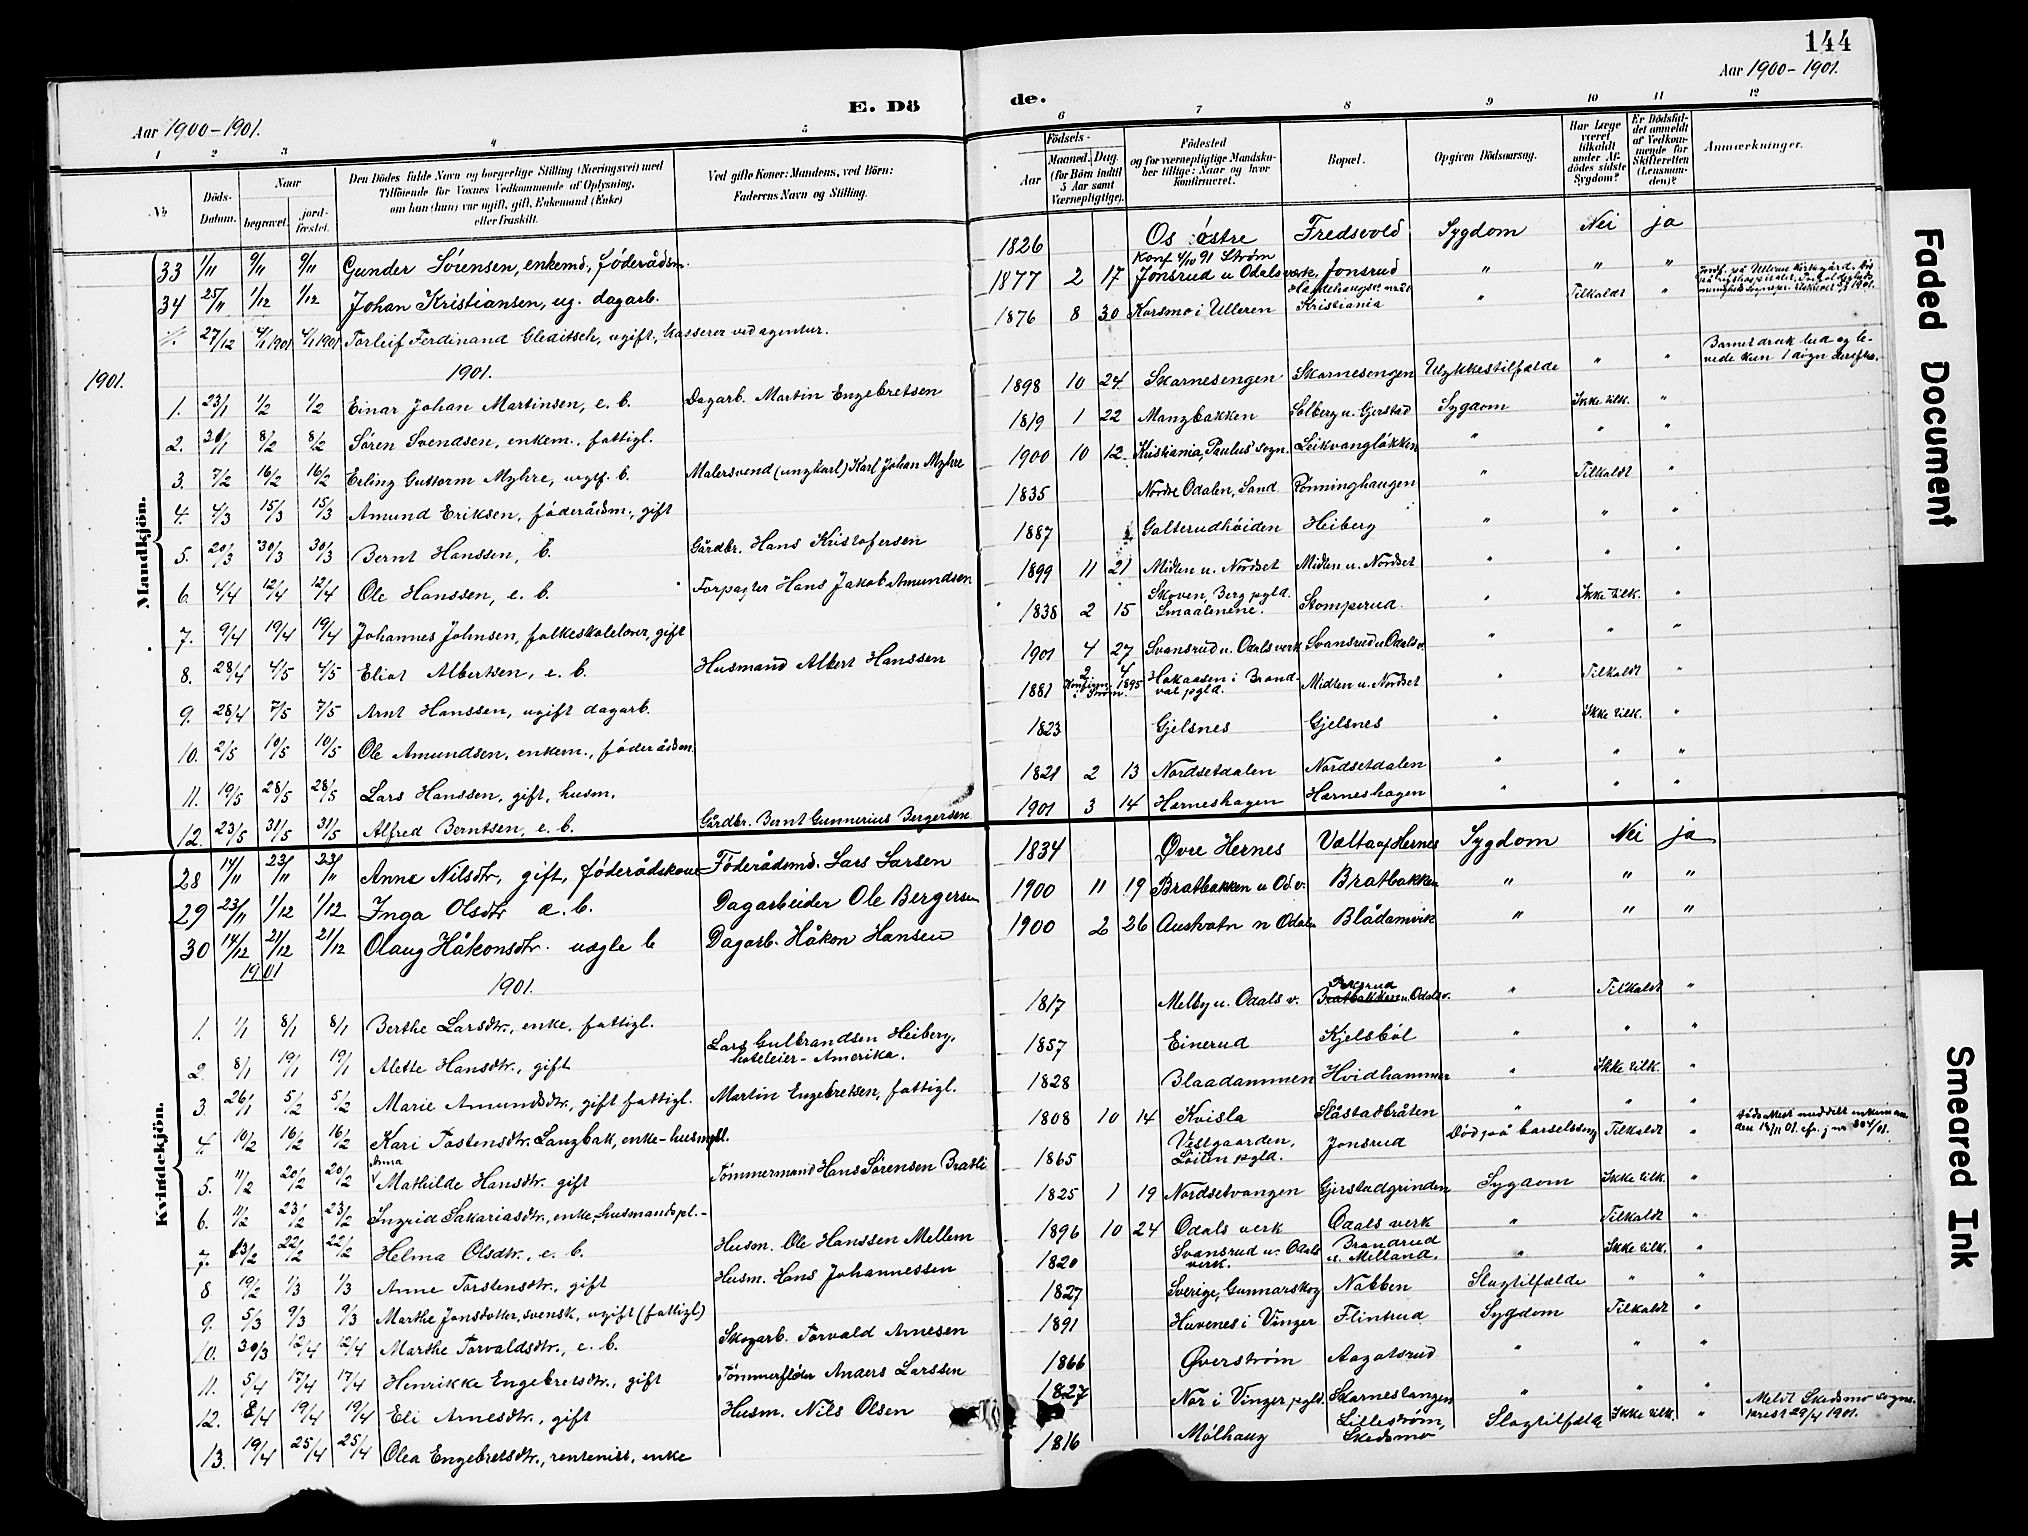 144
Aar 1900-1901.
E. Dö
de.
Aar 1900-1901.
1 2 3 4 5
6 7 8 9 10 11 12
No
Döds-Datum.
Naar
begravet.
jord-fæstet.
Den Dödes fulde Navn og borgerlige Stilling (Næringsvei) med
Tilföiende for Voxnes Vedkommende af Oplysning,
om han (hun) var ugift, gift, Enkemand (Enke)
eller fraskilt.
Ved gifte Koner: Mandens, ved Börn:
Faderens Navn og Stilling.
Födsels-
Aar
Maaned. Dag.
(for Börn indtil
5 Aar samt
Værnepligtige).
Födested
og for værnepligtige Mandska-
ber tillige: Naar og hvor
konfirmeret.
Bopæl.
Opgiven Dödsaarsag.
Har Læge
været
tilkaldt
under Af-
dödes sidste
Sygdom?
Er Dödsfal-
det anmeldt
af Vedkom-
mende for
Skifteretten
(Lensman-
den)?
Anmærkninger.
Mandkjön.
33 1/11 9/11 9/11 Gunder Sörensen, enkemd, föderådsm. 1826 Os östre Fredsvold Sygdom Nei ja
34 25/11 1/12 1/12 Johan Kristiansen, ug. dagarb. 1877 2 17 Konf 4/10 91 Ström
Jonsrud u Odalsverk, Jonsrud " " "
27/12 4/1 1901 4/1 1901 Torleif Ferdinand Gleditsch, ugift, kasserer ved agentur. 1876 8 30 Korsmo i Ulleren Kristiania " Tilkaldt "
1901.
1901.
1. 23/1 1/2 1/2 Einar Johan Martinsen, e. b. Dagarb. Martin Engebretsen 1898 10 24 Skarnesengen Skarnesengen Ulykkestilfælde " " Barnet drak lud og le-
vede kun 1 døgn derefter.
2. 30/1 8/2 8/2 Sören Svendsen, enkem., fattigl. 1819 1 22 Mangbakken Solberg u. Gjerstad Sygdom Ikke tilk. "
3. 7/2 16/2 16/2 Erling Guttorm Myhre, uegtf. b. Malersvend (ungkarl) Karl Johan Myhre 1900 10 12 Kristiania, Paulus' sogn. Leikvanglökken " " "
4. 4/3 15/3 15/3 Amund Eriksen, föderådsm., gift 1835 Nordre Odalen, Sand Rönninghaugen " Tilkaldt "
5. 20/3 30/3 30/3 Bernt Hanssen, b. Gårdbr. Hans Kristofersen 1887 Galterudhöiden Heiberg " " "
6. 4/4 12/4 12/4 Ole Hanssen, e. b. Forpagter Hans Jakob Amundsen 1899 11 21 Midten u. Nordset Midten u. Nordset " " "
7. 9/4 19/4 19/4 Johannes Johnsen, folkeskolelærer, gift 1838 2 15 Skoven, Berg pgld.
Smaalenene. Stomperud. " Ikke tilk. "
8. 28/4 4/5 4/5 Eliot Albertsen, e. b. Husmand Albert Hanssen 1901 4 27 Svansrud u. Odalsverk Svansrud u Odalsv. " " "
9. 28/4 7/5 7/5 Arnt Hanssen, ugift dagarb. 1881 2 4 Konfirm. 1895 i Ström. Hokaasen i Brand-
val pgld. Midten u. Nordset " Tilkaldt "
10. 2/5 10/5 10/5 Ole Amundsen, enkem., föderådsm. 1823 Gjelsnes Gjelsnes " Ikke tilk. "
11. 19/5 28/5 28/5 Lars Hanssen, gift, husm. 1821 2 13 Nordsetdalen Nordsetdalen " " "
12. 23/5 31/5 31/5 Alfred Berntsen, e. b. Gårdbr. Bernt Gunnerius Bergersen 1901 3 14 Harneshagen Harneshagen " " "
Kvindekjön.
28 14/11 23/11 23/11 Anne Nilsdtr, gift, föderådskone Föderådsmd. Lars Larsen 1834 Øvre Hernes Valta af Hernes Sygdom Nei ja
29 23/11 1/12 1/12 Inga Olsdtr æ. b. Dagarbeider Ole Bergersen 1900 11 19 Bratbakken u Od.v. Bratbakken " " "
30 14/12 21/12 21/12 Olaug Håkonsdtr. uægte b Dagarb. Håkon Hansen 1900 2 26 Austvatn n Odalen Blådamvik " " "
1901
1901.
1. 1/1 8/1 8/1 Berthe Larsdtr., enke, fattigl. 1817 Melby u. Odals v. Bratbakken u. Odalsv. " Tilkaldt "
2. 8/1 19/1 19/1 Alette Hansdtr., gift Lars Gulbrandsen Heiberg,
hoteleier - Amerika. 1857 Einerud Kjelsböl " " "
3. 26/1 5/2 5/2 Marie Amundsdtr., gift fattigl. Martin Engebretsen, fattigl. 1828 Blaadammen Hvidhammer " Ikke tilk. "
4. 10/2 16/2 16/2 Kari Tostensdtr. Langbak, enke-husmpl. 1808 10 14 Kvisla Slåstadbråten " " "
5. 11/2 20/2 20/2 Anna Mathilde Hansdtr. gift Tömmermand Hans Sörensen Bratli 1865 Vestgaarden,
Löiten pgld. Jonsrud Död på barselseng Tilkaldt " Dödsattest meddelt enkemann
den 18/11 01. cfr. j nr 304/01.
6. 11/2 23/2 23/2 Ingrid Sakariasdtr., enke, husmandspl.- 1825 1 19 Nordsetvangen Gjerstadgrinden Sygdom Ikke tilk. "
7. 13/2 22/2 22/2 Helma Olsdtr., e. b. Husm. Ole Hanssen Mellem 1896 10 24 Odals verk Odals verk " Tilkaldt "
8 19/2 1/3 1/3 Anne Torstensdtr., gift Husm. Hans Johannessen 1820 Svansrud u. Odals
verk. Brandrud
u. Metland. " Ikke tilk. "
9. 5/3 9/3 9/3 Marthe Jonsdotter, svensk, ugift (fattigl) 1827 Sverige, Gunnarskog Nabben Slagtilfælde " "
10. 30/3 12/4 12/4 Marthe Torvaldsdtr., e. b. Skogarb. Torvald Arnesen 1891 Huvenes i Vinger Flintrud Sygdom Tilkaldt "
11. 5/4 17/4 17/4 Henrikke Engebretsdtr., gift Tömmerflöder Anders Larssen 1866 Øverström Aagotsrud " " "
12. 8/4 19/4 19/4 Eli Arnesdtr., gift Husm. Nils Olsen 1827 Nor i Vinger pgld. Skarnestangen " " "
13. 19/4 25/4 25/4 Olea Engebretsdtr., rentenist, enke 1816 Mölhaug Lilleström,
Skedsmo Slagtilfælde Ikke tilk. " Meldt Skedsmo sogne-
prest 29/4 1901.
Faded Document
Smeared Ink